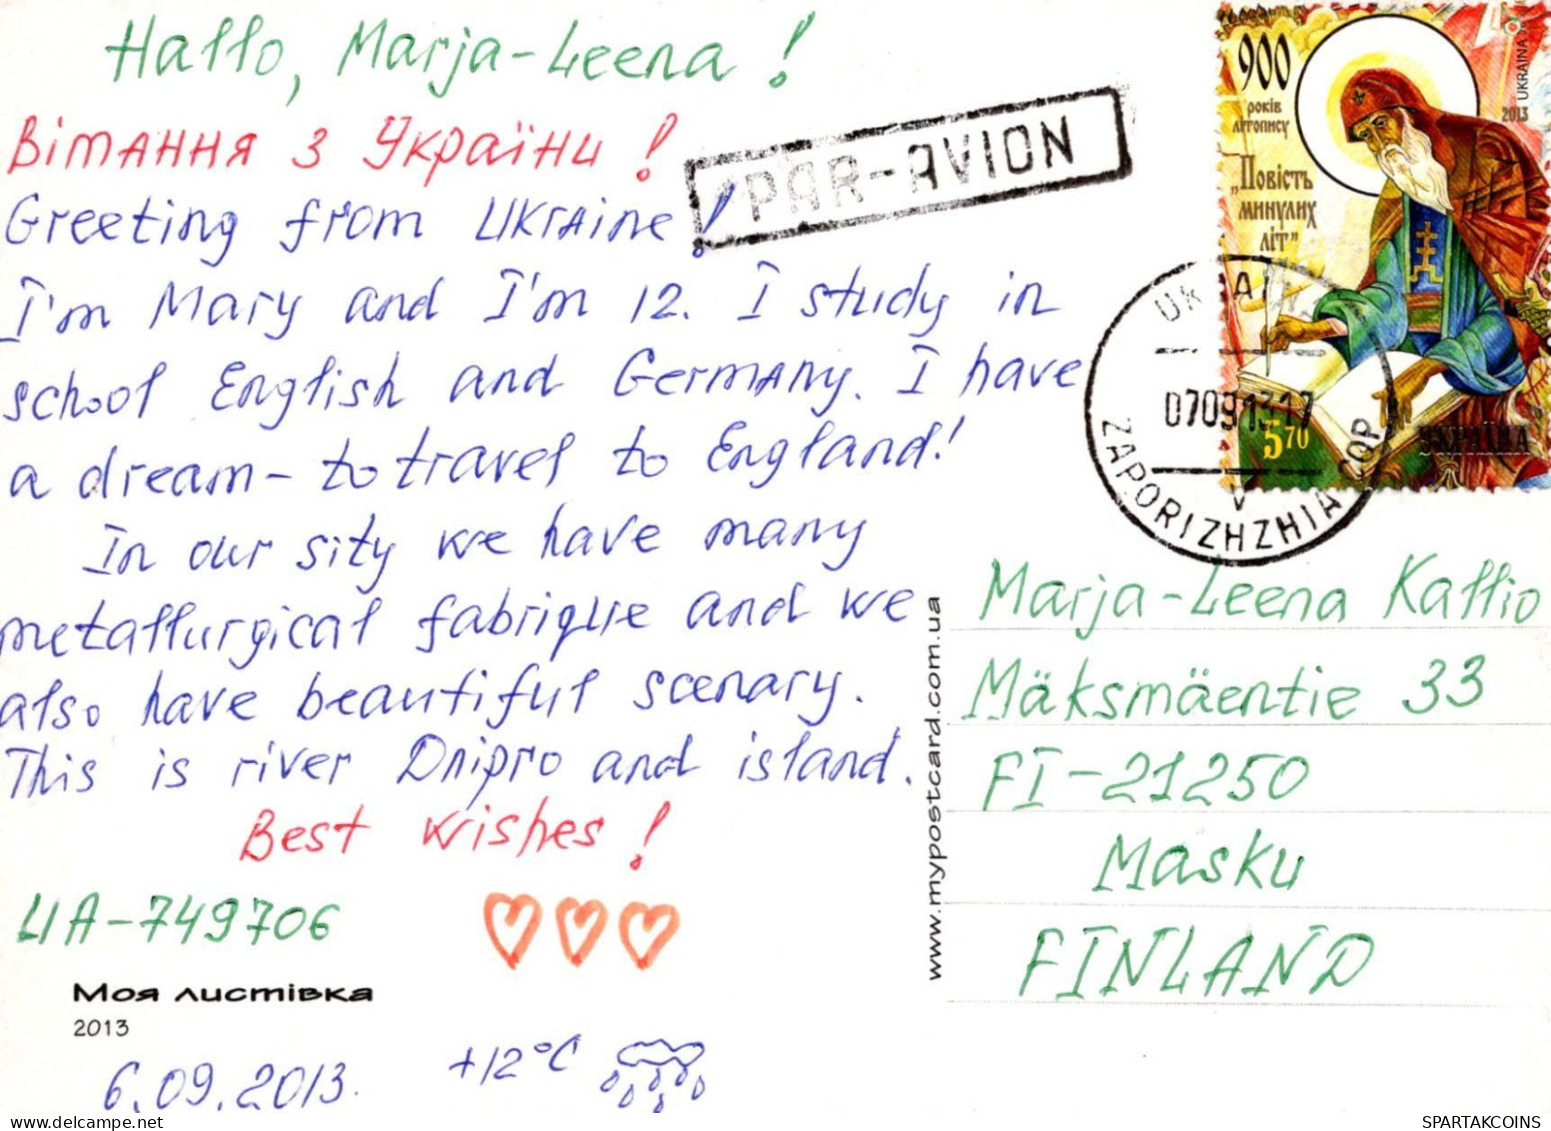 Hallo, Marja-Leena!
Вітання з України!
Greeting from UKRAine!
I'm Mary and I'm 12. I study in
school English and Germany. I have
a dream - to travel to England!
In our sity we have many
metallurgical fabrique and we
also have beautiful scenary.
This is river Dnipro and island.
Best wishes!
UA-749706
Моя листівка
2013
6.09.2013.
+12°C
PAR-AVION
900
років
літопису
„Повість
минулих
літ”
2013
UKRAINA
5.70
УКРАЇНА
070913 17
V
ZAPORIZHZHIA
www.mypostcard.com.ua
Marja-Leena Kallio
Mäksmäentie 33
FI-21250
Masku
FINLAND
www.delcampe.net
SPARTAKCOINS